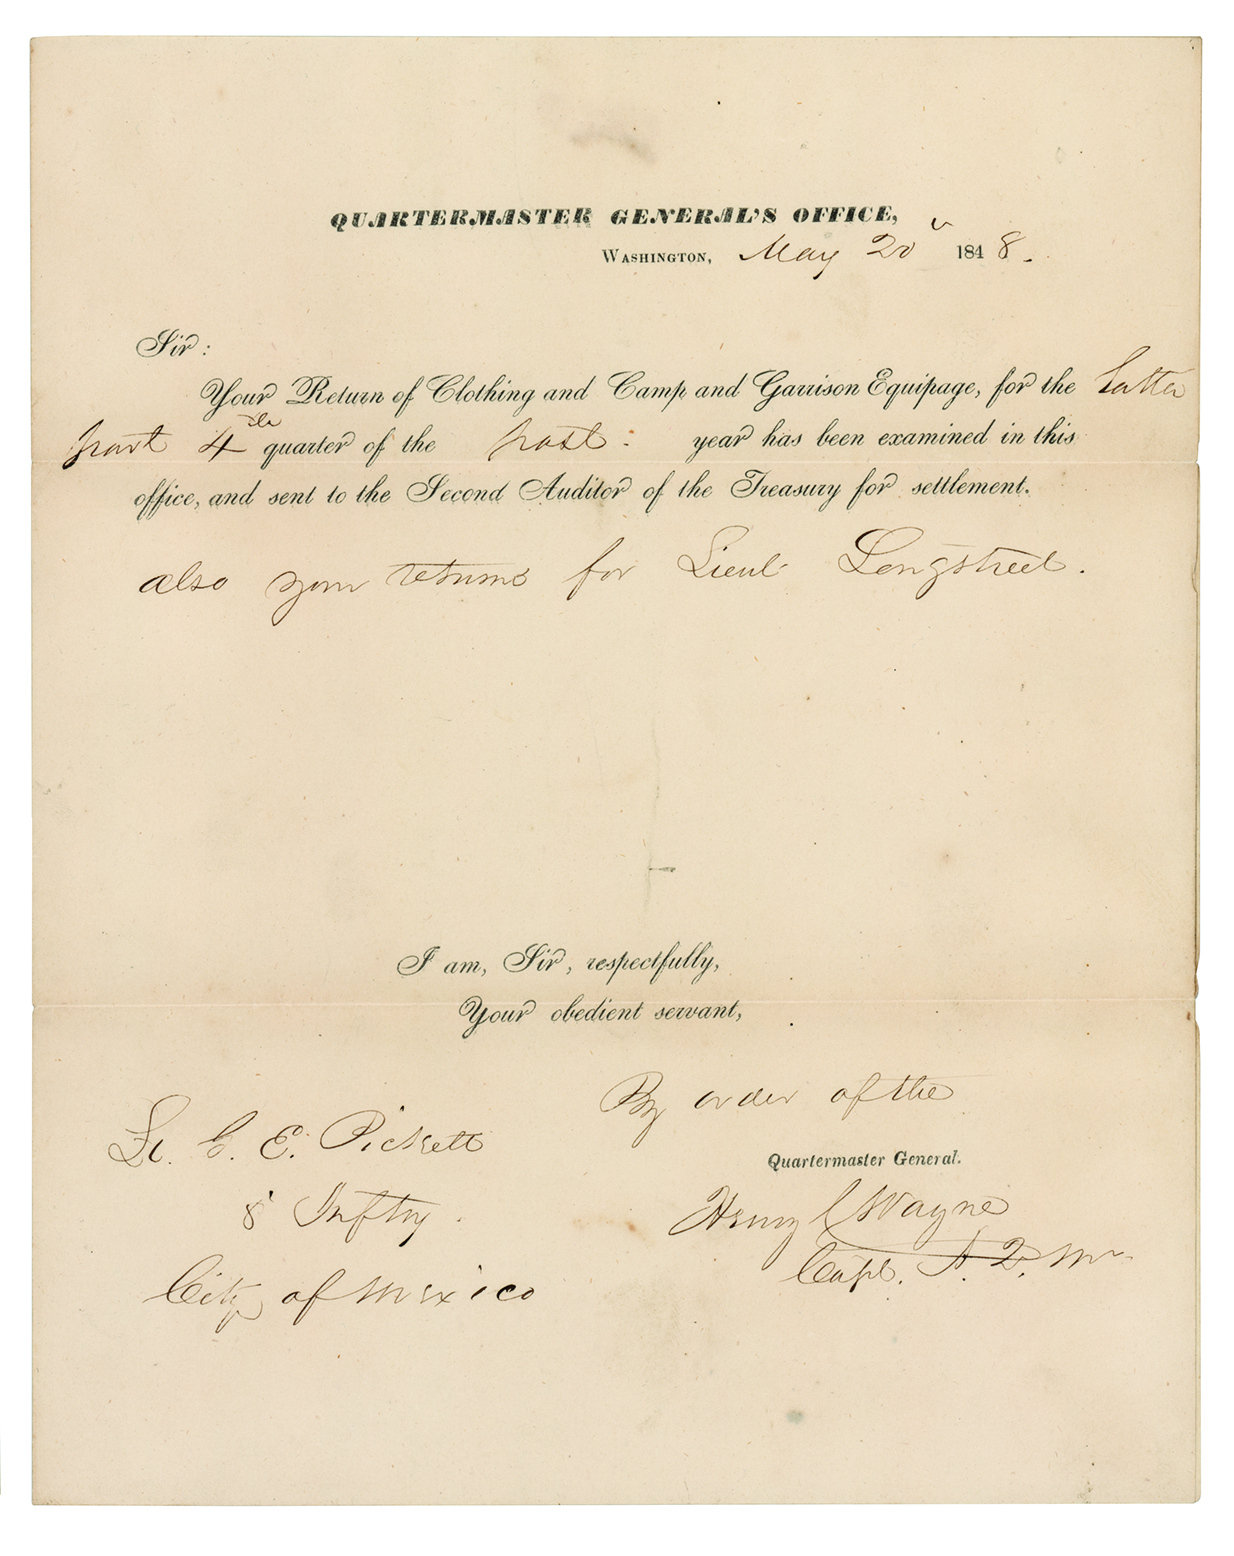 QUARTERMASTER GENERAL'S OFFICE,
WASHINGTON, May 20 1848.
Sir:
Your Return of Clothing and Camp and Garrison Equipage, for the latter
part 4th quarter of the past year has been examined in this
office, and sent to the Second Auditor of the Treasury for settlement.
also your returns for Lieut Longstreet.
I am, Sir, respectfully,
Your obedient servant,
By order of the
Quartermaster General.
Henry C Wayne
Capt. A. Q. M
Lt. G. E. Pickett
8 Inftry.
City of Mexico